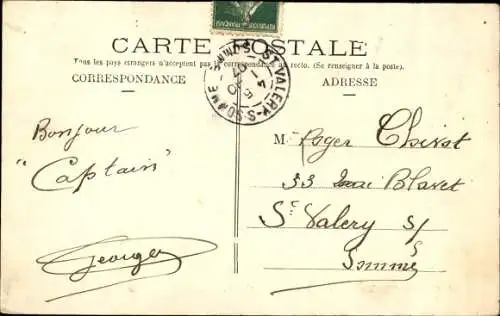 RÉPUBLIQUE FRANÇAISE
CARTE POSTALE
Tous les pays étrangers n'acceptent pas la correspondance au recto. (Se renseigner à la poste).
CORRESPONDANCE
ADRESSE
ST-VALERY-S-SOMME SOMME
5 -
4
07
Bonjour
"Captain"
Georges
M. Roger
33 Quai Blavet
St Valery s/
Somme